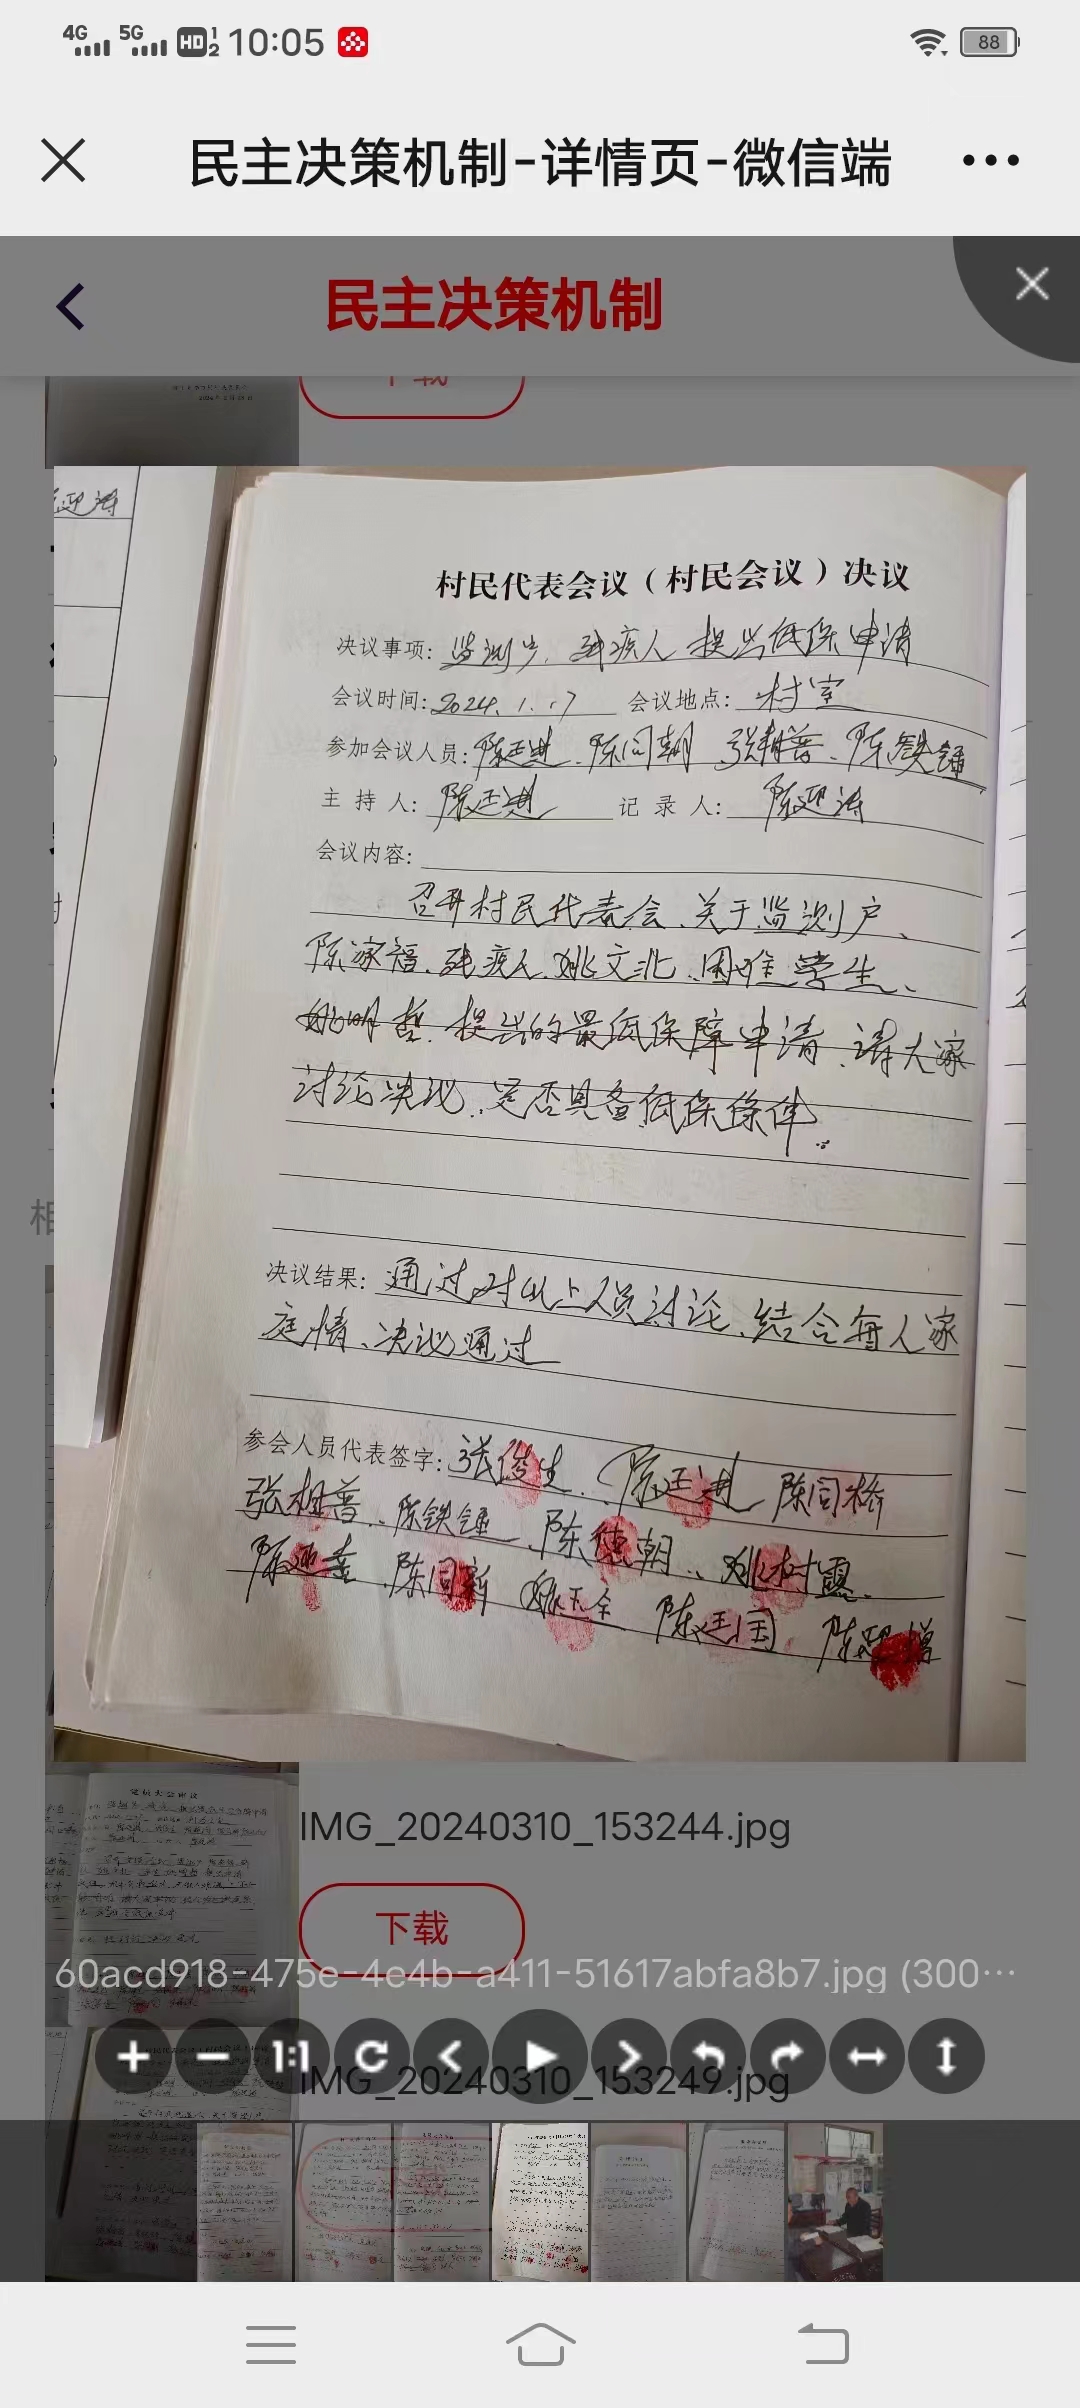 4G 5G HD 1 2 10:05 88
民主决策机制-详情页-微信端
民主决策机制
下载
迎涛
村民代表会议（村民会议）决议
决议事项: 监测户、残疾人提出低保申请
会议时间: 2024.1.17 会议地点: 村室
参加会议人员: 陈廷进、陈同朝 张相普、陈铁锤
主持人: 陈廷进 记录人: 陈迎涛
会议内容:
召开村民代表会、关于监测户、
陈家福、残疾人姚文北、困难学生、
姚明哲、提出的最低保障申请、请大家
讨论决议、是否具备低保條件.
决议结果: 通过对以上人员讨论、结合每人家
庭情、决议通过
参会人员代表签字: 张俊生、陈廷进 陈同桥
张相普、陈铁锤、陈德朝、姚树
陈迎喜、陈同新 姚天全 陈廷国 陈迎增
相
IMG_20240310_153244.jpg
下载
60acd918-475e-4e4b-a411-51617abfa8b7.jpg (300…
1:1
IMG_20240310_153249.jpg